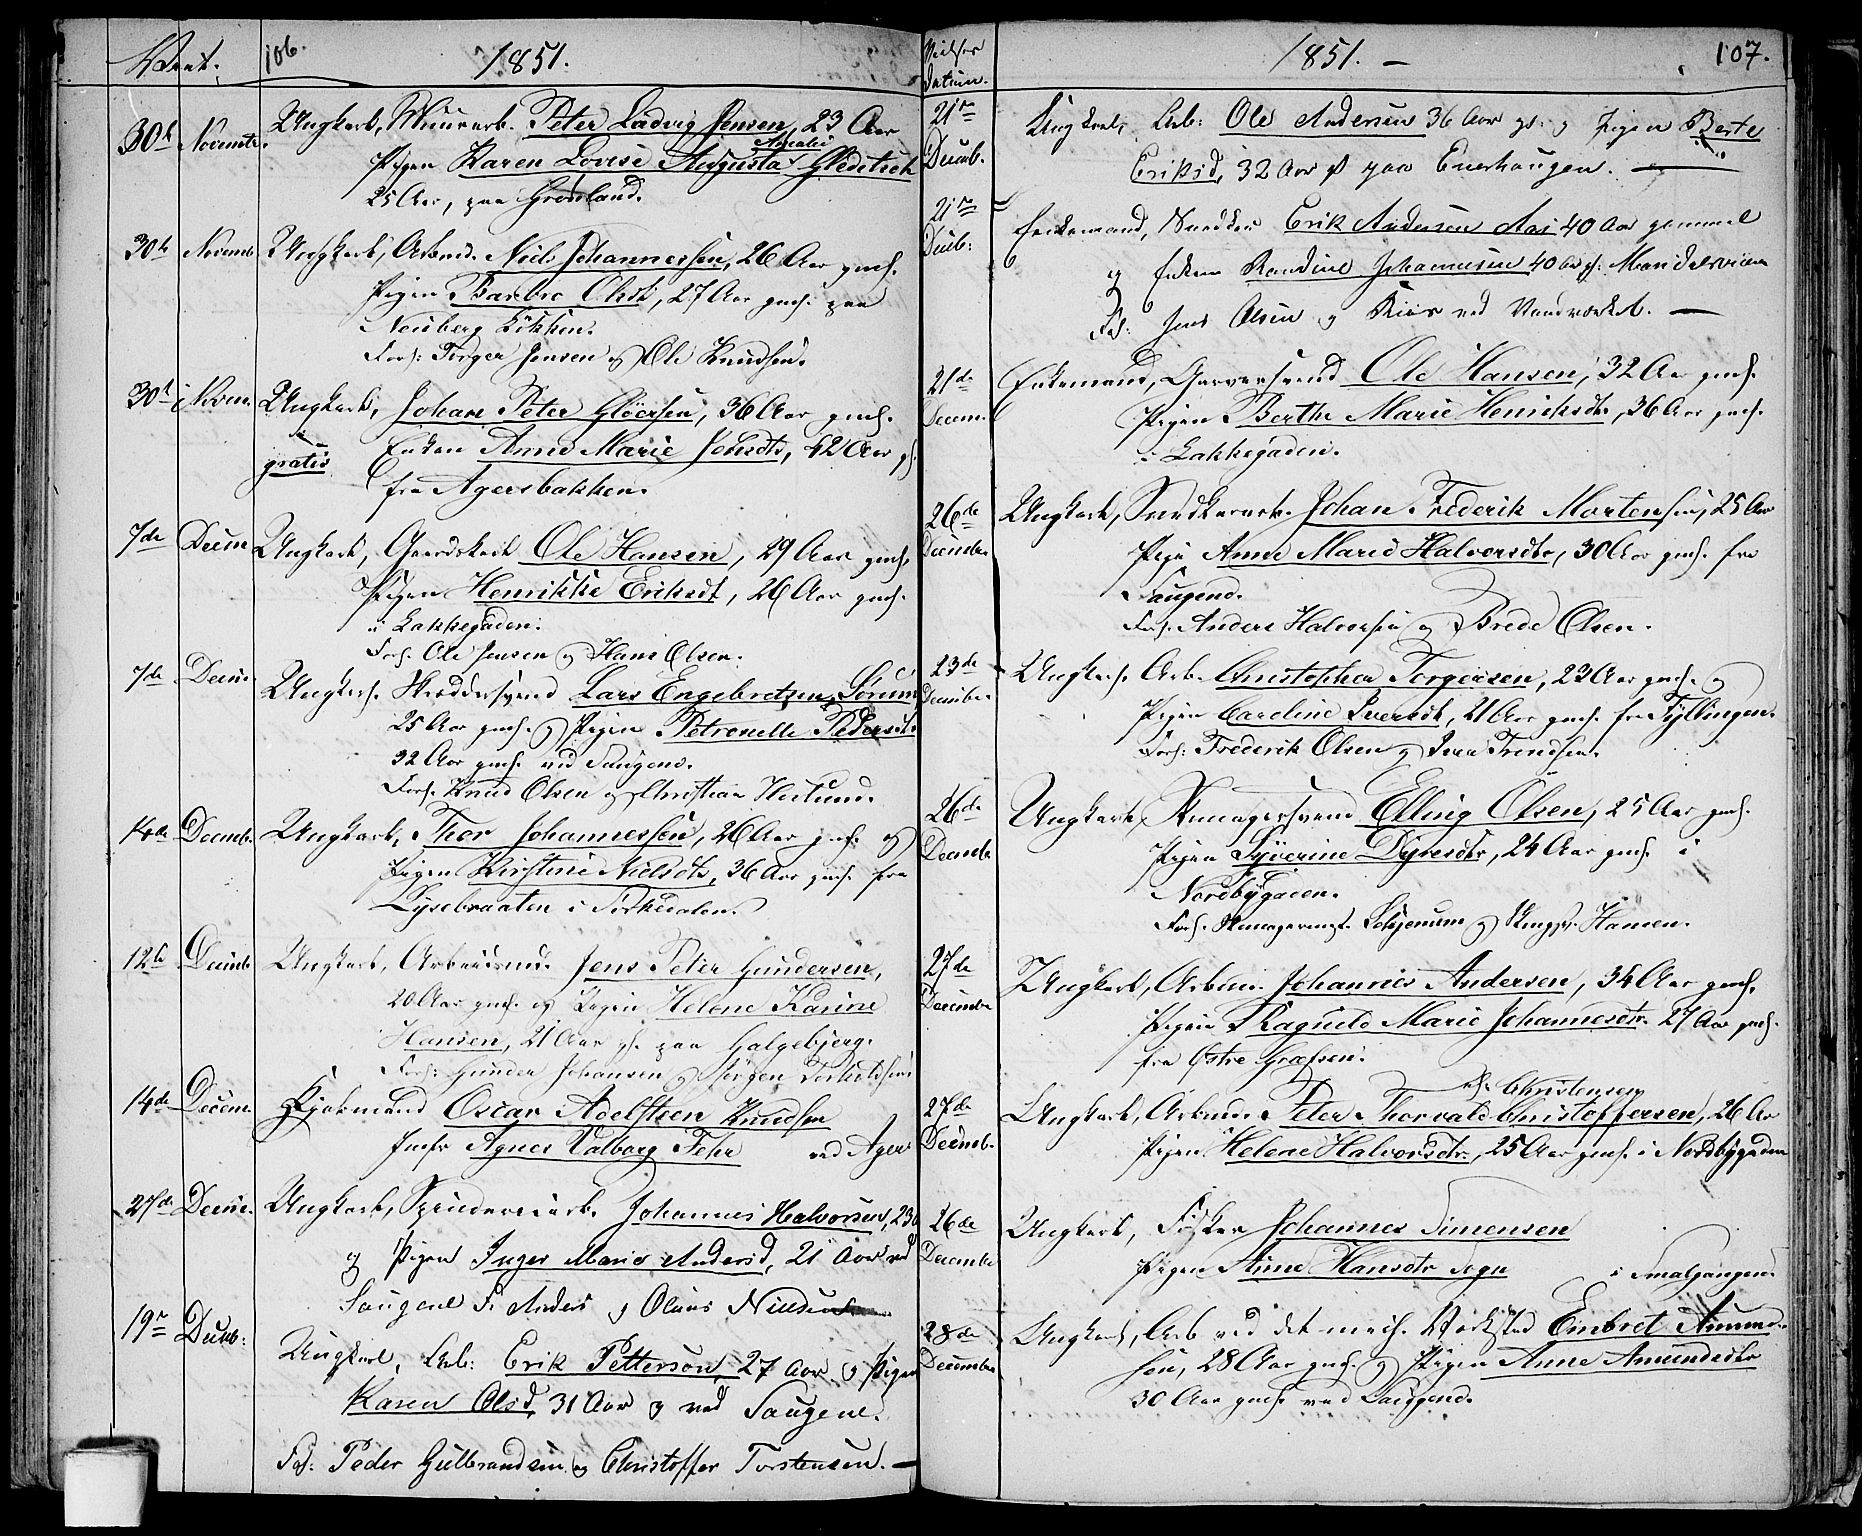 106.
1851.
30te Novembr. Ungkarl, Murarb. Peter Ludvig Jensen, 23 Aar
Amalie
Pigen Karen Lovise Augusta Gleditsch
25 Aar, paa Grønland.
30te Novemb. Ungkarl, Arbmd. Niels Johannessen, 26 Aar gml.
Pigen Barbro Olsdt, 27 Aar gml. paa
Neuberg Løkken.
Forl: Torger Jensen og Ole Knudsen.
30te Novem. Ungkarl, Johan Peter Gløersen, 36 Aar gml.
gratis Enken Anne Marie Jensdtr, 42 Aar gl.
fra Agersbakken.
7de Decem Ungkarl, Gaardskarl Ole Hansen, 29 Aar gml.
Pigen Henrikke Eriksdt, 26 Aar gml.
i Lakkegaden.
Forl. Ole Jensen og Hans Olsen.
7de Decem. Ungkarl. Skræddersvend Lars Engebretsen Sørum
25 Aar gml. og Pigen Petronelle Pedersdt.
32 Aar gml. ved Saugene.
Forl. Knud Olsen og Christian
14de Decemb. Ungkarl, Thor Johannessen, 26 Aar gml. og
Pigen Kirstine Nielsdtr, 36 Aar gml. fra
Lysebraaten i Sørkedalen.
12te Decemb Ungkarl, Arbeidsmd. Jens Peter Gundersen,
20 Aar gml. og Pigen Helene Karine
Hansen, 21 Aar gl. paa Galgebjerg.
Forl: Gunder Johansen og Jørgen
14de Decem. Oscar Adelsteen Knudsen
Jomfr Agnes Valborg Fehr ved Ager
27de Decem. Ungkarl, Johannes Halvorsen, 23
og Pigen Inger Marie Andersd, 21 Aar ved
Saugene F. Anders og Olaus Nielsen
19de Decemb: Ungkarl, Arb: Erik Pettersen, 27 Aar og Pigen
Karen Olsd, 31 Aar g ved Saugene.
Fol: Peder Gulbrandsen og Christoffer Torstensen.
Vielses
Datum.
1851.
107.
21de Decemb. Ungkarl, Arb: Ole Andersen 36 Aar gl. og Pigen Berte
Eriksd, 32 Aar gl paa Enerhaugen.
21de Decb: Enkemand, Snedker Erik Andersen Aas 40 Aar gammel
og Enken Randine Johannesen 40 Aar gl.
Fol: Jens Olsen og Kiær ved Vandværket.
21de Decem. Enkemand, Garversvend Ole Hansen, 32 Aar gml.
Pigen Berthe Marie Henriksdt., 36 Aar gml.
i Lakkegaden.
26de Decembr Ungkarl, Snedkerarb. Johan Frederik Mortensen, 25 Aar
Pige Anne Marie Halvorsdtr, 30 Aar gml. fra
Saugene.
Forl. Anders Halvorsen og Brede Olsen.
23de Decembr. Ungkarl. Arb. Christopher Torgersen, 23 Aar gml. og
Pigen Caroline Iversdt, 21 Aar gml. fra Fyllingen.
Forl: Frederik Olsen og Iver Trondsen.
26de Decemb. Ungkarl, Skomagersvend Elling Olsen, 25 Aar gml.
Pigen Syverine Dyresdtr, 24 Aar gml. i
Nordbygaden.
Forl. Skomagermst. og Hansen.
27de Decembr Ungkarl, Arbm. Johannes Andersen, 34 Aar gml.
Pigen Ragnild Marie Johannesdtr. 27 Aar gml.
fra Østre Græfsen.
Christensen
27de Decemb. Ungkarl, Arbmd. Peter Thorvald Christoffersen, 26 Aar
Pigen Helene Halvorsdtr., 25 Aar gml. i Nordbygaden
26de Decembr Ungkarl, Fisker Johannes Simensen
Pigen Anne Hansdtr Sogn i Smalgangen.
28de Decembr Ungkarl, Arb ved det mech. Værksted Embret Amund-
sen, 28 Aar gml. og Pigen Anne Amundsdtr
30 Aar gml. ved Saugene.